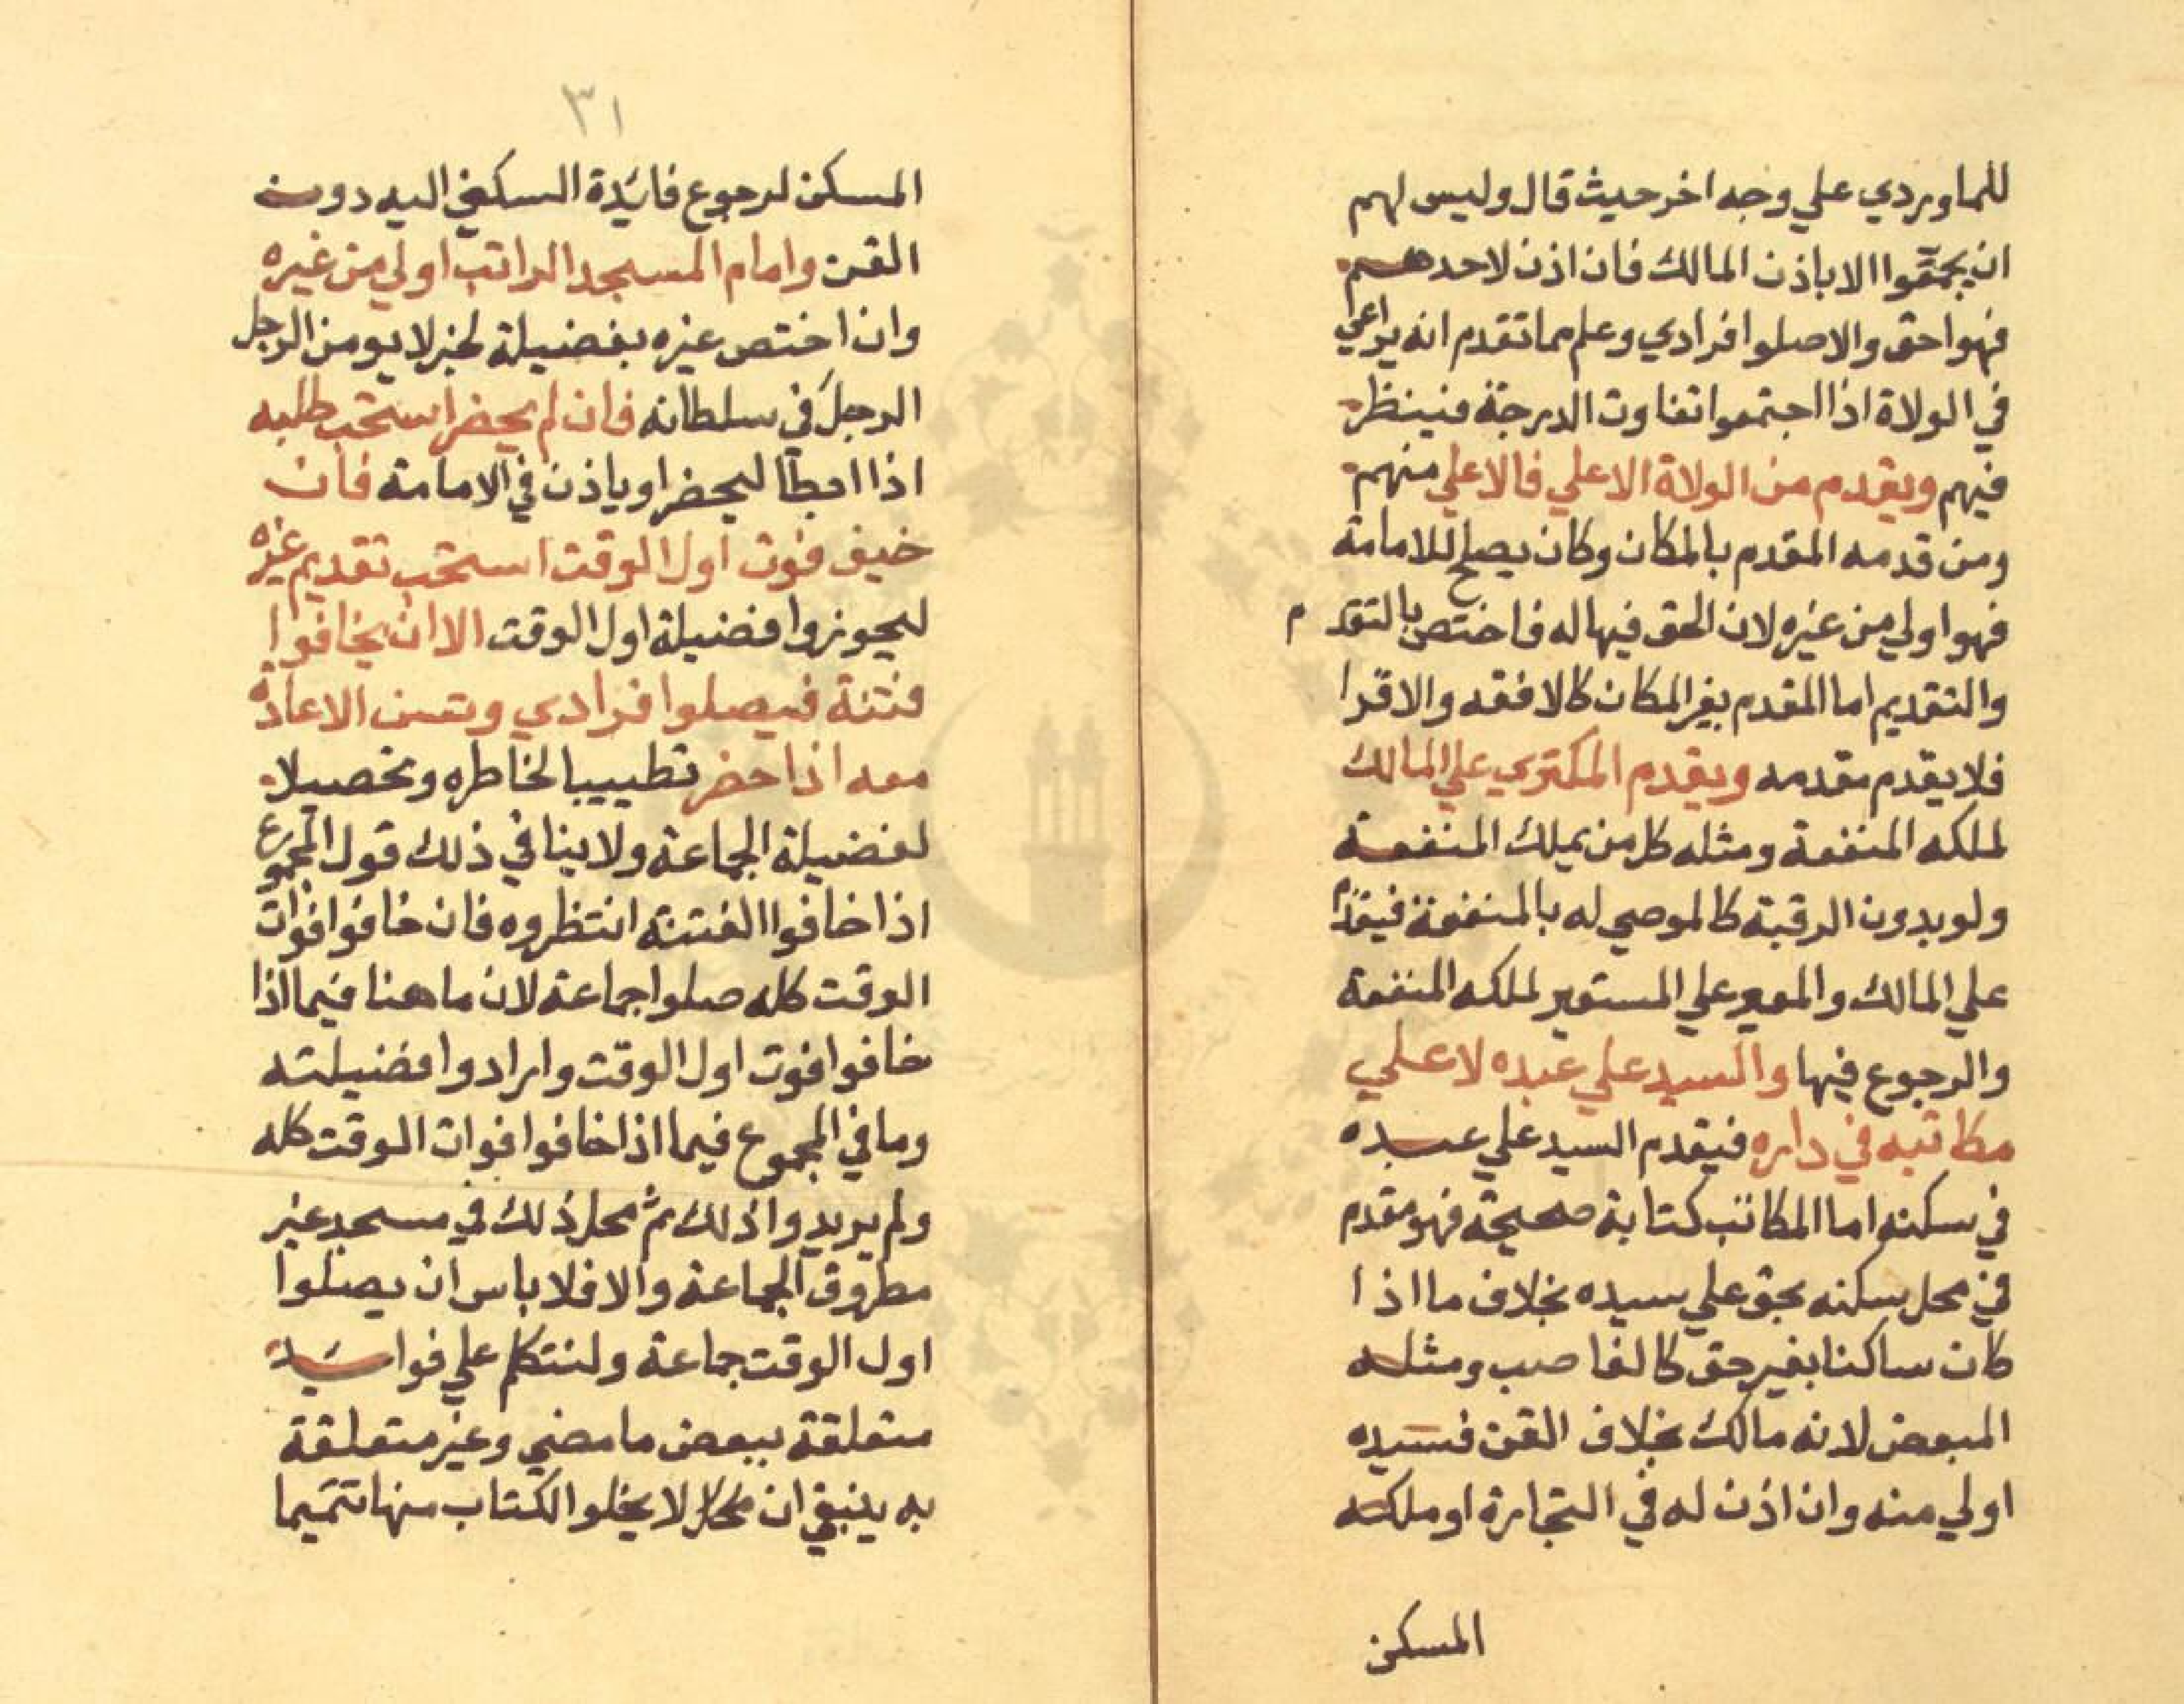 للماوردي علي وجه اخر حيث قال وليس لهم
ان يجمعوا الا باذن المالك فان اذن لاحدهم
فهو احق والا صلوا فرادي وعلم مما تقدم انه يراعي
في الولاة اذا اجتمعوا تفاوت الدرجة فينظر
فيهم ويقدم من الولاة الاعلي فالاعلي منهم
ومن قدمه المقدم بالمكان وكان يصلح للامامة
فهو اولي من غيره لان الحق فيها له فاختص بالتقدم
والتقديم اما المقدم بغير المكان كالافقه والاقرا
فلا يقدم مقدمه ويقدم المكتري علي المالك
لملكه المنفعة ومثله كل من يملك المنفعة
ولو بدون الرقبة كالموصي له بالمنفعة فيقدم
علي المالك والمعير علي المستعير لملكه المنفعة
والرجوع فيها والسيد علي عبده لا علي
مكاتبه في داره فيقدم السيد علي عبده
في سكنه اما المكاتب كتابة صحيحة فهو مقدم
في محل سكنه بحق علي سيده بخلاف ما اذا
كان ساكنا بغير حق كالغاصب ومثله
المبعض لانه مالك بخلاف القن فسيده
اولي منه وان اذن له في التجارة او ملكه
المسكن
٣١
المسكن لرجوع فايدة السكني اليه دون
القن وامام المسجد الراتب اولي من غيره
وان اختص غيره بفضيلة لخبر لا يومن الرجل
الرجل في سلطانه فان لم يحضر استحب طلبه
اذا ابطا ليحضر او ياذن في الامامة فان
خيف فوت اول الوقت استحب تقديم غيره
ليحوزوا فضيلة اول الوقت الا ان يخافوا
فتنة فيصلوا فرادي وتسن الاعادة
معه اذا حضر تطييبا لخاطره وتحصيلا
لفضيلة الجماعة ولا ينافي ذلك قول المجموع
اذا خافوا الفتنة انتظروه فان خافوا فوات
الوقت كله صلوا جماعة لان ما هنا فيما اذا
خافوا فوت اول الوقت وارادوا فضيلته
وما في المجموع فيما اذا خافوا فوات الوقت كله
ولم يريدوا ذلك ثم محل ذلك في مسجد غير
مطروق الجماعة والا فلا باس ان يصلوا
اول الوقت جماعة ولنتكلم علي فوايد
متعلقة ببعض ما مضي وغير متعلقة
به ينبغي ان لا يخلو الكتاب منها تتميما